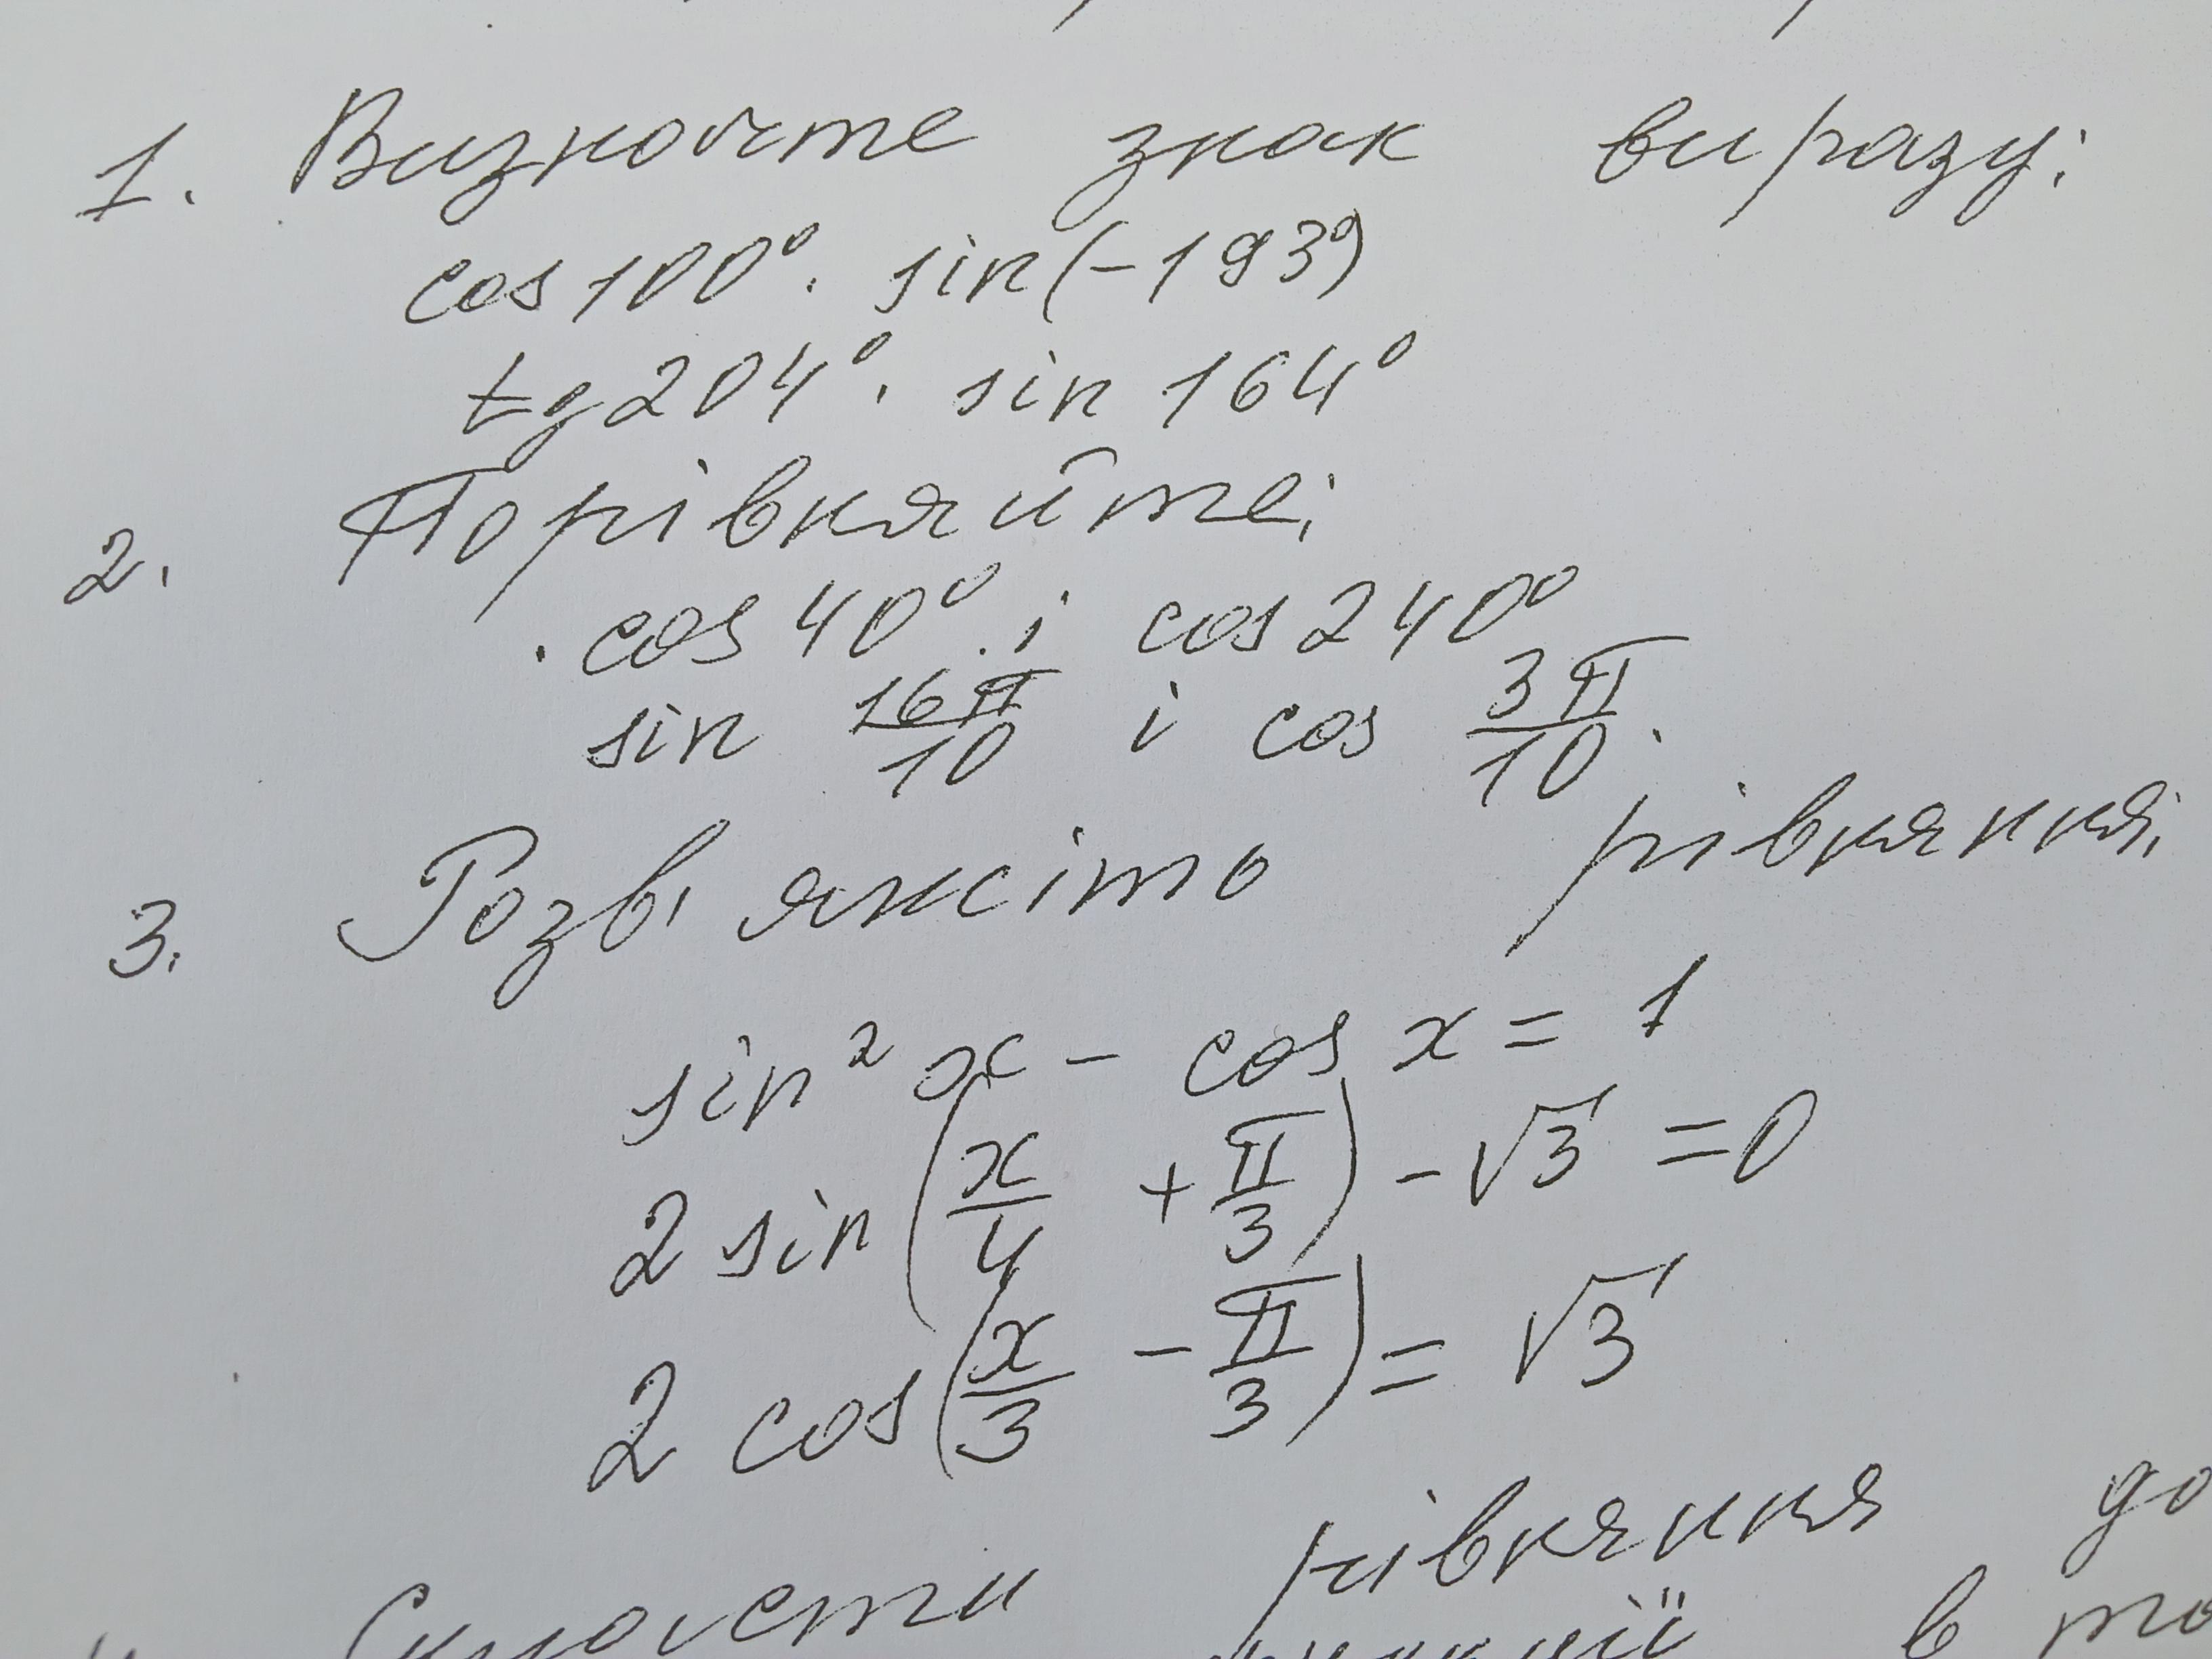 1. Визначте знак виразу:
cos 100° · sin(-193°)
tg 204° · sin 164°
2. Порівняйте:
cos 40° і cos 240°
sin 16π/10 і cos 3π/10.
3. Розв'яжіть рівняння:
sin² x - cos x = 1
2 sin(x/4 + π/3) - √3 = 0
2 cos(x/3 - π/3) = √3
рівняння до
в